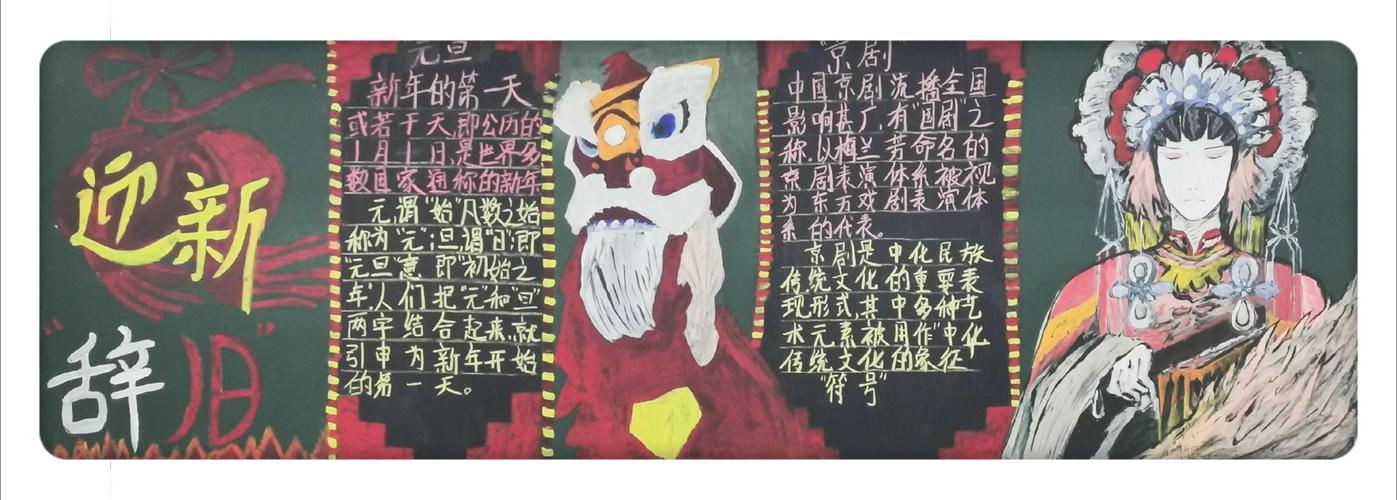 迎新
"辞旧"
"元旦
新年的第一天
或若干天,即公历的
1月1日,是世界多
数国家通称的新年
元,谓"始"凡数之始
称为"元";旦,谓"日";即
"元旦"意即"初始之
年"人们把"元"和"旦"
两字结合起来,就
引申为新年开始
的第一天。
"京剧"
中国京剧流播全国
影响甚广,有"国剧"之
称.以梅兰芳命名的
京剧表演体系被视
为东方戏剧表演体
系的代表。
京剧是中化民族
传统文化的重要表
现形式,其中多种艺
术元素被用作"中化
传统文化的象征
"符号"